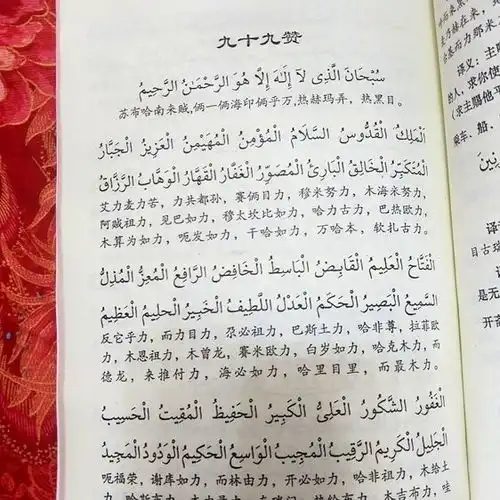 九十九赞
سُبْحَانَ الَّذِي لَآ إِلَهَ إِلَّا هُوَ الرَّحْمَنُ الرَّحِيمُ
苏布哈南来贼,俩一俩海印俩乎万,热赫玛弄,热黑目。
اَلْمَلِكُ الْقُدُّوسُ السَّلَامُ الْمُؤْمِنُ الْمُهَيْمِنُ الْعَزِيزُ الْجَبَّارُ
الْمُتَكَبِّرُ الْخَالِقُ الْبَارِئُ الْمُصَوِّرُ الْغَفَّارُ الْقَهَّارُ الْوَهَّابُ الرَّزَّاقُ
艾力麦力苦,力共都孙,赛俩目力,穆米努力,木海米努力,
阿贼祖力,见巴如力,穆太坎比如力,哈力古力,巴热欧力,
木算为如力,呃发如力,干哈如力,万哈本,软扎古力。
الْفَتَّاحُ الْعَلِيمُ الْقَابِضُ الْبَاسِطُ الْخَافِضُ الرَّافِعُ الْمُعِزُّ الْمُذِلُّ
السَّمِيعُ الْبَصِيرُ الْحَكَمُ الْعَدْلُ اللَّطِيفُ الْخَبِيرُ الْحَلِيمُ الْعَظِيمُ
反它乎力,而力目力,尕必祖力,巴斯土力,哈非尊,拉菲欧
力,木恩祖力,木曾龙,赛米欧力,白岁如力,哈克木力,而
德龙,来推付力,海必如力,哈里目里,而最木力。
الْغَفُورُ الشَّكُورُ الْعَلِيُّ الْكَبِيرُ الْحَفِيظُ الْمُقِيتُ الْحَسِيبُ
الْجَلِيلُ الْكَرِيمُ الرَّقِيبُ الْمُجِيبُ الْوَاسِعُ الْحَكِيمُ الْوَدُودُ الْمَجِيدُ
呃福荣,谢库如力,而林由力,开必如力,哈非祖力,木给土